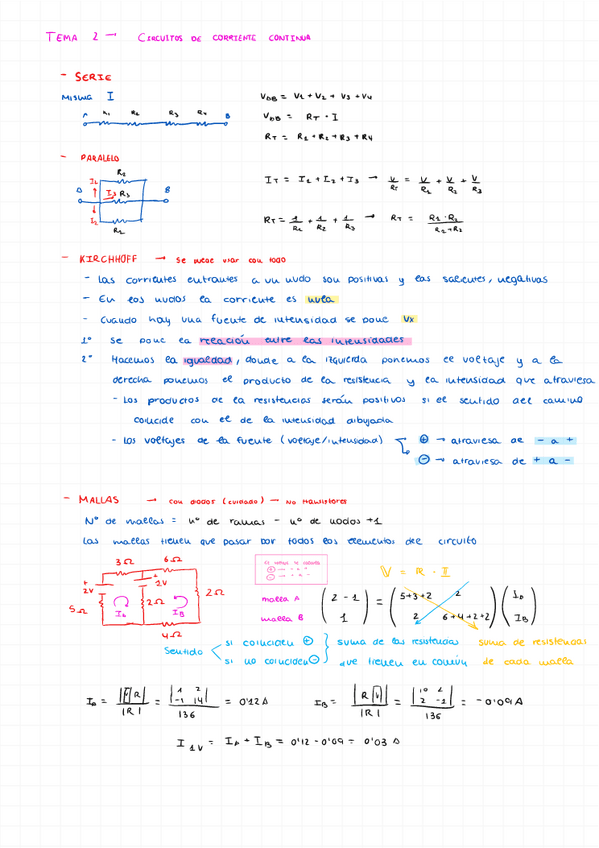 TEMA 2 → CIRCUITOS DE CORRIENTE CONTINUA
- SERIE
MISMA I
A R1 R2 R3 R4 B
VAB = V1 + V2 + V3 + V4
VAB = RT · I
RT = R1 + R2 + R3 + R4
- PARALELO
IT = I1 + I2 + I3 → V/RT = V/R1 + V/R2 + V/R3
RT = 1/R1 + 1/R2 + 1/R3 → RT = R1·R2/R1+R2
- KIRCHHOFF → Se puede usar con todo
- Las corrientes entrantes a un nudo son positivas y las salientes, negativas
- En los nudos la corriente es nula
- Cuando hay una fuente de intensidad se pone Vx
1º Se pone la relación entre las intensidades
2º Hacemos la igualdad, donde a la izquierda ponemos el voltaje y a la
derecha ponemos el producto de la resistencia y la intensidad que atraviesa
- Los productos de la resistencias serán positivos si el sentido del camino
coincide con el de la intensidad dibujada
- Los voltajes de la fuente (voltaje/intensidad) ⊕ → atraviesa de - a +
⊖ → atraviesa de + a -
- MALLAS → con dados (cuidado) → No
Nº de mallas = nº de ramas - nº de nodos +1
Las mallas tienen que pasar por todos los elementos del circuito
3Ω 6Ω
+ 2V 2V 2Ω
5Ω IA 2Ω IB
4Ω
V = R · I
malla A (2 - 1) = (5+3+2 2) (IA)
malla B (1) (2 6+4+2+2) (IB)
Sentido si coinciden ⊕ suma de las resistencias suma de resistencias
si no coinciden ⊖ que tienen en común de cada malla
136 = 0'12 A
136 = -0'09 A
I1V = IA + IB = 0'12 - 0'09 = 0'03 A